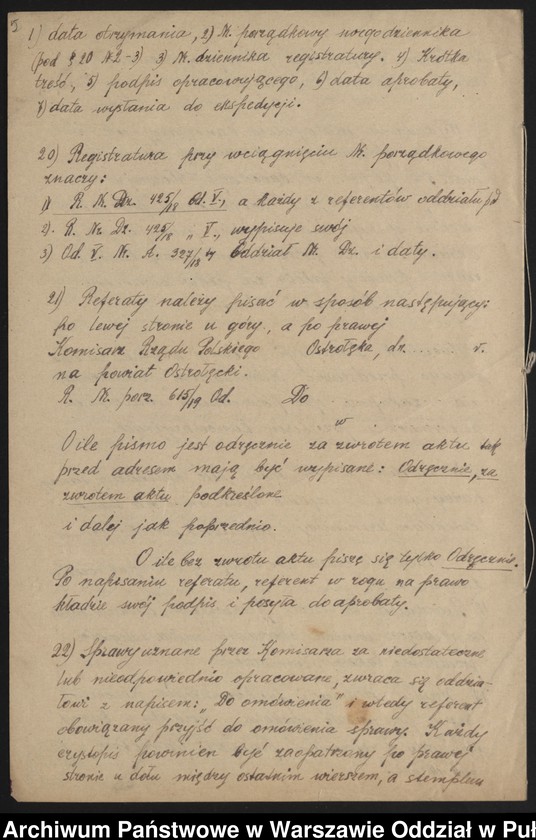 5.
1) data otrzymania, 2) N. porządkowy dziennika
(pod § 20 N2-3) 3) N. dziennika registratury. 4) Krótka
treść, 5) podpis opracowującego, 6) data aprobaty,
7) data wysłania do ekspedycji.
20) Registratura przy wciągnięciu N. porządkowego
znaczy:
1) R. N. Dz. 425/18 Od. V., a każdy z referentów oddziału
2). R. N. Dz. 425/18 „ V., wypisuje swój
3) Od. V. N. A. 327/18 Oddział N. Dz. i daty.
21) Referaty należy pisać w sposób następujący:
po lewej stronie u góry, a po prawej
Komisarz Rządu Polskiego Ostrołęka, dn. r.
na powiat Ostrołęcki.
R. N. porz. 615/19 Od. Do
O ile pismo jest odręcznie za zwrotem aktu
przed adresem mają być wypisane: Odręcznie, za
zwrotem aktu podkreślone
i dalej jak poprzednio.
O ile bez zwrotu aktu pisze się tylko Odręcznie.
Po napisaniu referatu, referent w rogu na prawo
kładzie swój podpis i posyła do aprobaty.
22) Sprawy uznane przez Komisarza za niedostatecznie
lub nieodpowiednio opracowane, zwraca się oddzia-
łowi z napisem: „Do omówienia" i wtedy referent
obowiązany przyjść do omówienia sprawy. Każdy
czystopis powinien być zaopatrzony po prawej
stronie u dołu między ostatnim wierszem, a stemplem
Archiwum Państwowe w Warszawie Oddział w Puł